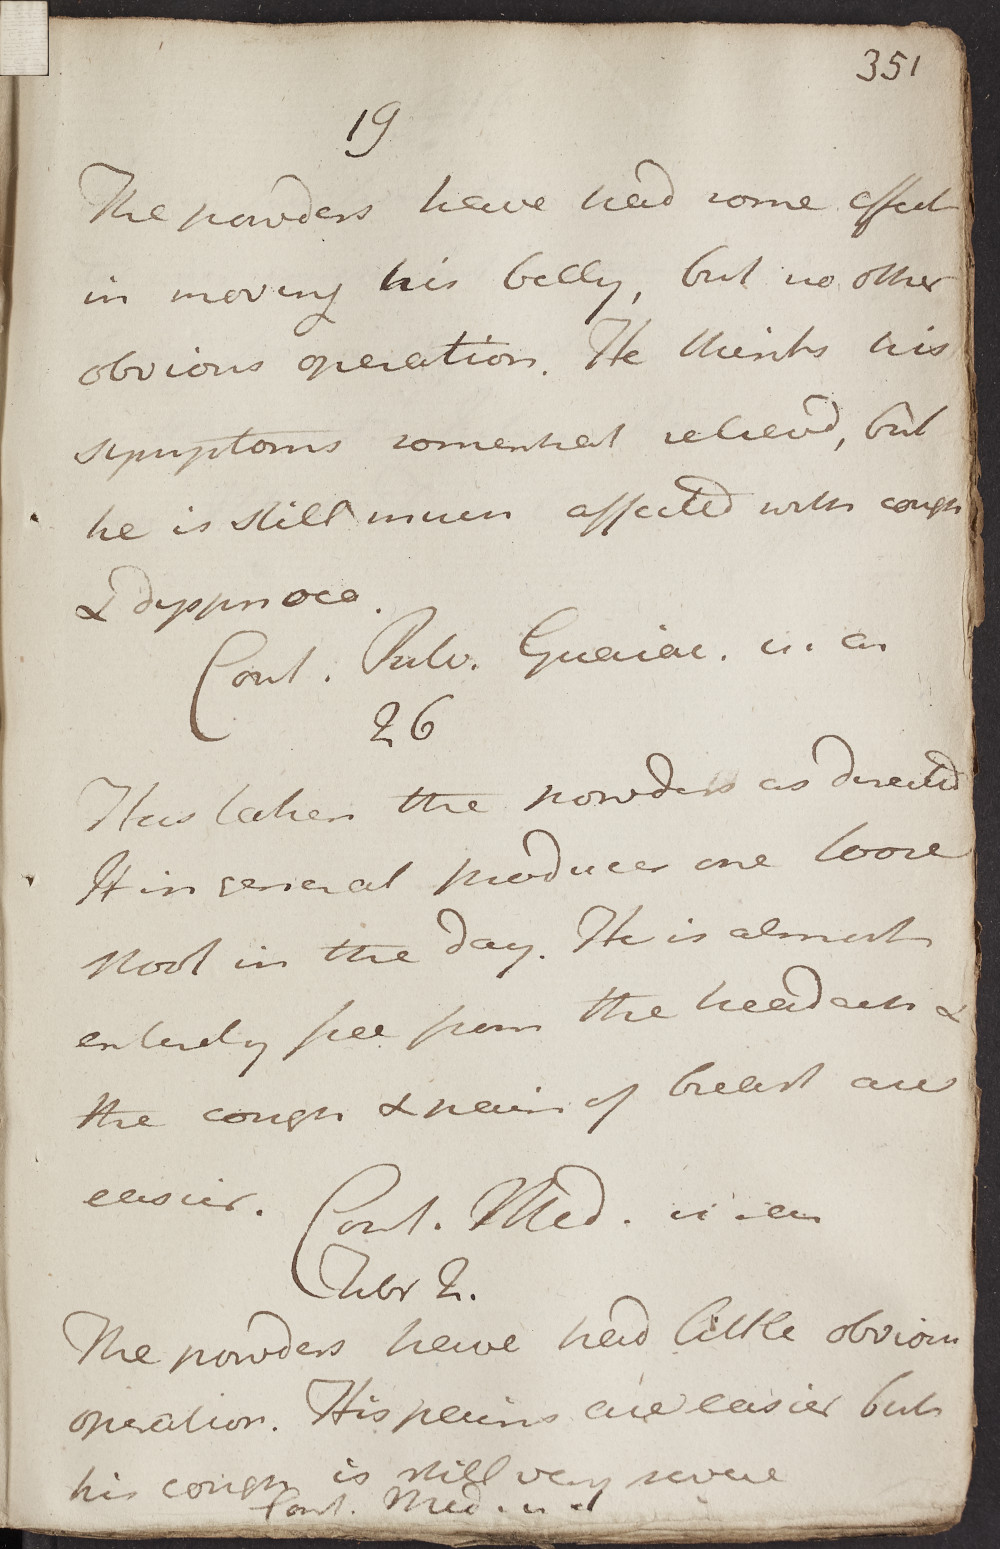 351
19
The powders have had some effect
in moving his belly, but no other
obvious operation. He thinks his
symptoms somewhat relievd, but
he is still much affected with cough
& dyspnoea.
Cont. Pulv. Guaiac.
26
Has taken the powders as directed
It in general produces one loose
stool in the day. He is almost
entirely free from the headach &
the cough & pain of breast are
easier.
Cont. Med.
2.
The powders have had little obvious
operation. His pains are easier but
his cough is still very severe
Cont. Med.